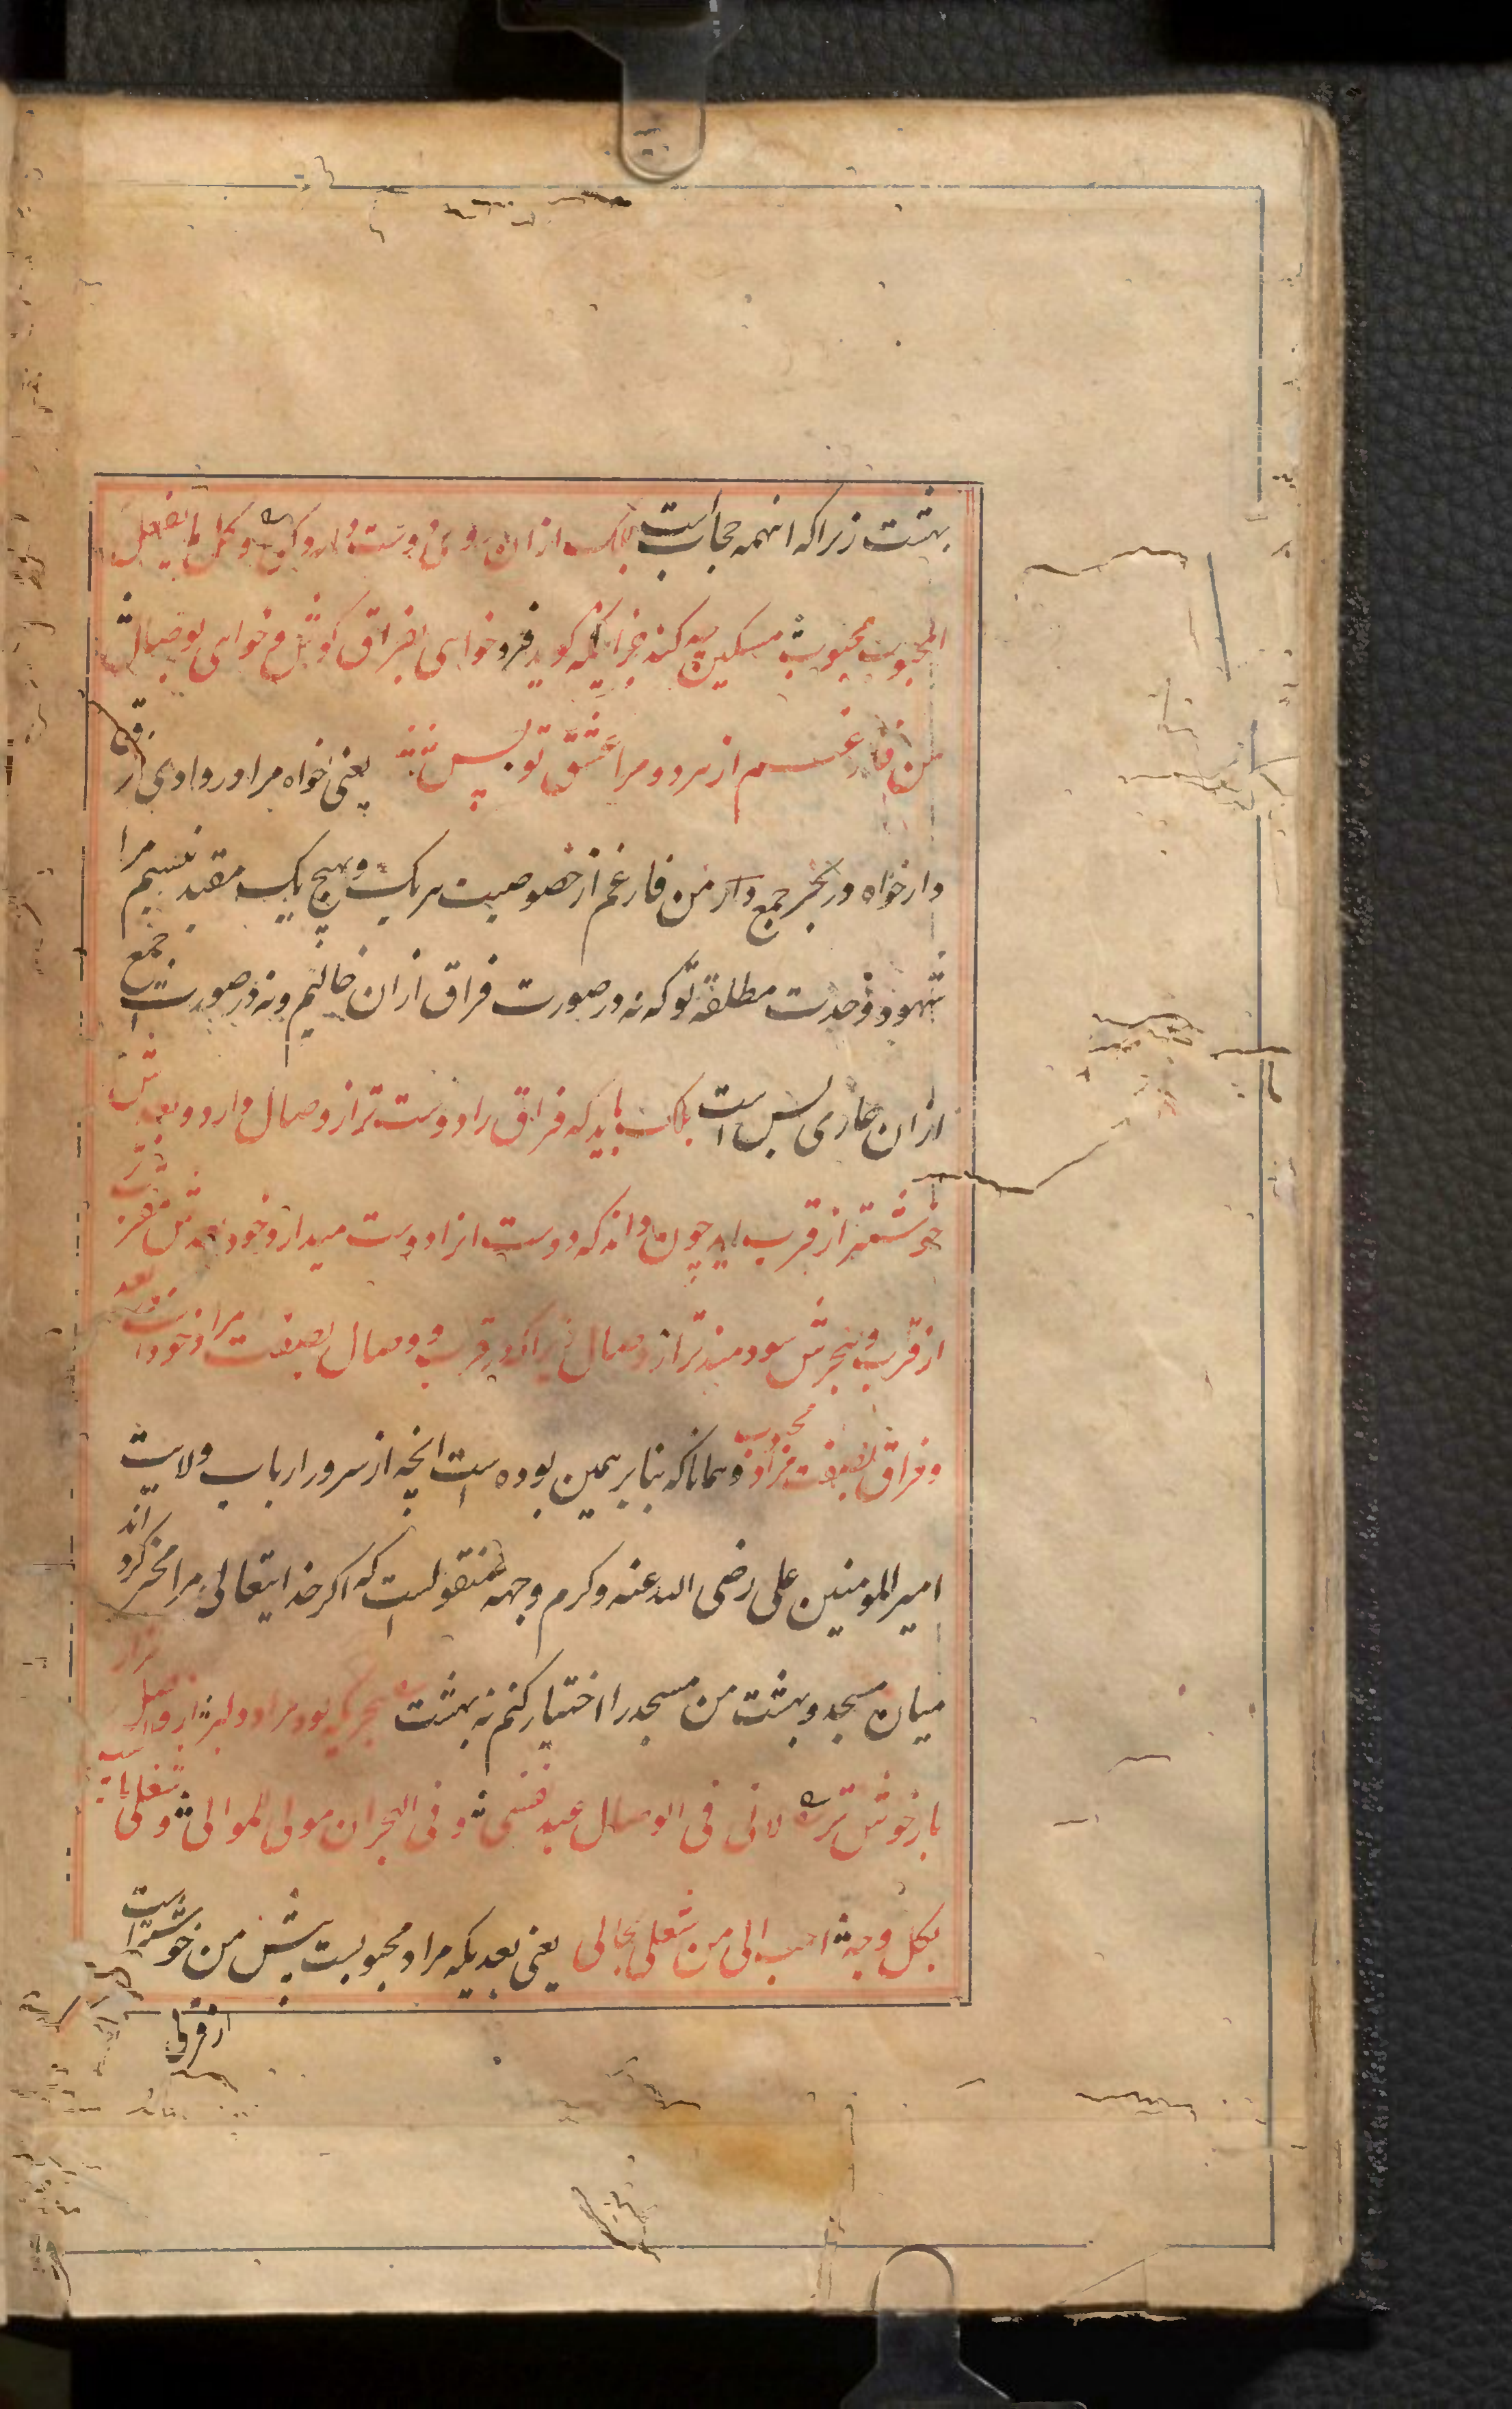 بهشت زیراکه اینهمه حجابست بلک ازان روی دوست دارد که وکل ما یفعل
المحبوب محبوب مسکین چه کند جز آنکه گوید فرد خواهی بفراق کوش و خواهی بوصال
من فارغم از هر دو مرا عشق تو بس یعنی خواه مرا در وادی فرق
دار خواه در بحر جمع دار من فارغم از خصوصیت هر یک و بهیچ یک مقید نیسیم مرا
شهود وحدت مطلقهٔ تو که نه در صورت فراق ازان خالیم و نه در صورت جمع
ازان عاری بس است بلک باید که فراق را دوست تر از وصال دارد و بعدش
خوشتر از قرب اید چون داند که دوست انرا دوست میدارد خود بعدش مقرب تر
از قرب و هجرش سودمند تر از وصال زیراکه در قرب و وصال بصفت مراد خود است و در بعد
و فراق بصفت مراد محبوب و همانا که بنا بر همین بوده است انچه از سرور ارباب ولایت
امیر المومنین علی رضی الله عنه و کرم وجهه منقولست که اکر خدایتعالی مرا مخیر کرداند
میان مسجد و بهشت من مسجد را اختیار کنم نه بهشت هجری که بود مراد دلبر از وصل هزار
بار خوش تر لانی فی الوصال عبید نفسی و فی الهجران مولی للموالی و شغلی بالحبیب
بکل وجه احب الی من شغلی بحالی یعنی بعدیکه مراد محبوبست پیش من خوشتر است
از قربی